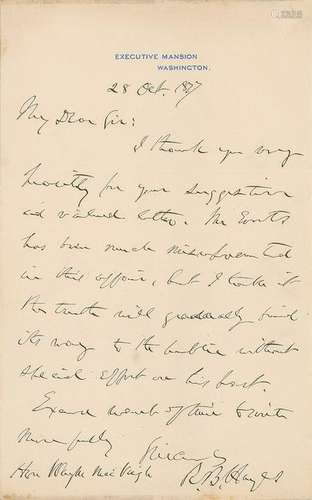 EXECUTIVE MANSION
WASHINGTON.
28 Oct. 1877
My Dear Sir:
I thank you very
heartily for your suggestion
and valued letter. Mr Evarts
has been much misrepresented
in this affair, but I take it
the truth will gradually find
its way to the public without
special effort on his part.
Excuse want of time to write
more fully
Sincerely
R. B. Hayes
Hon Wayne MacVeagh